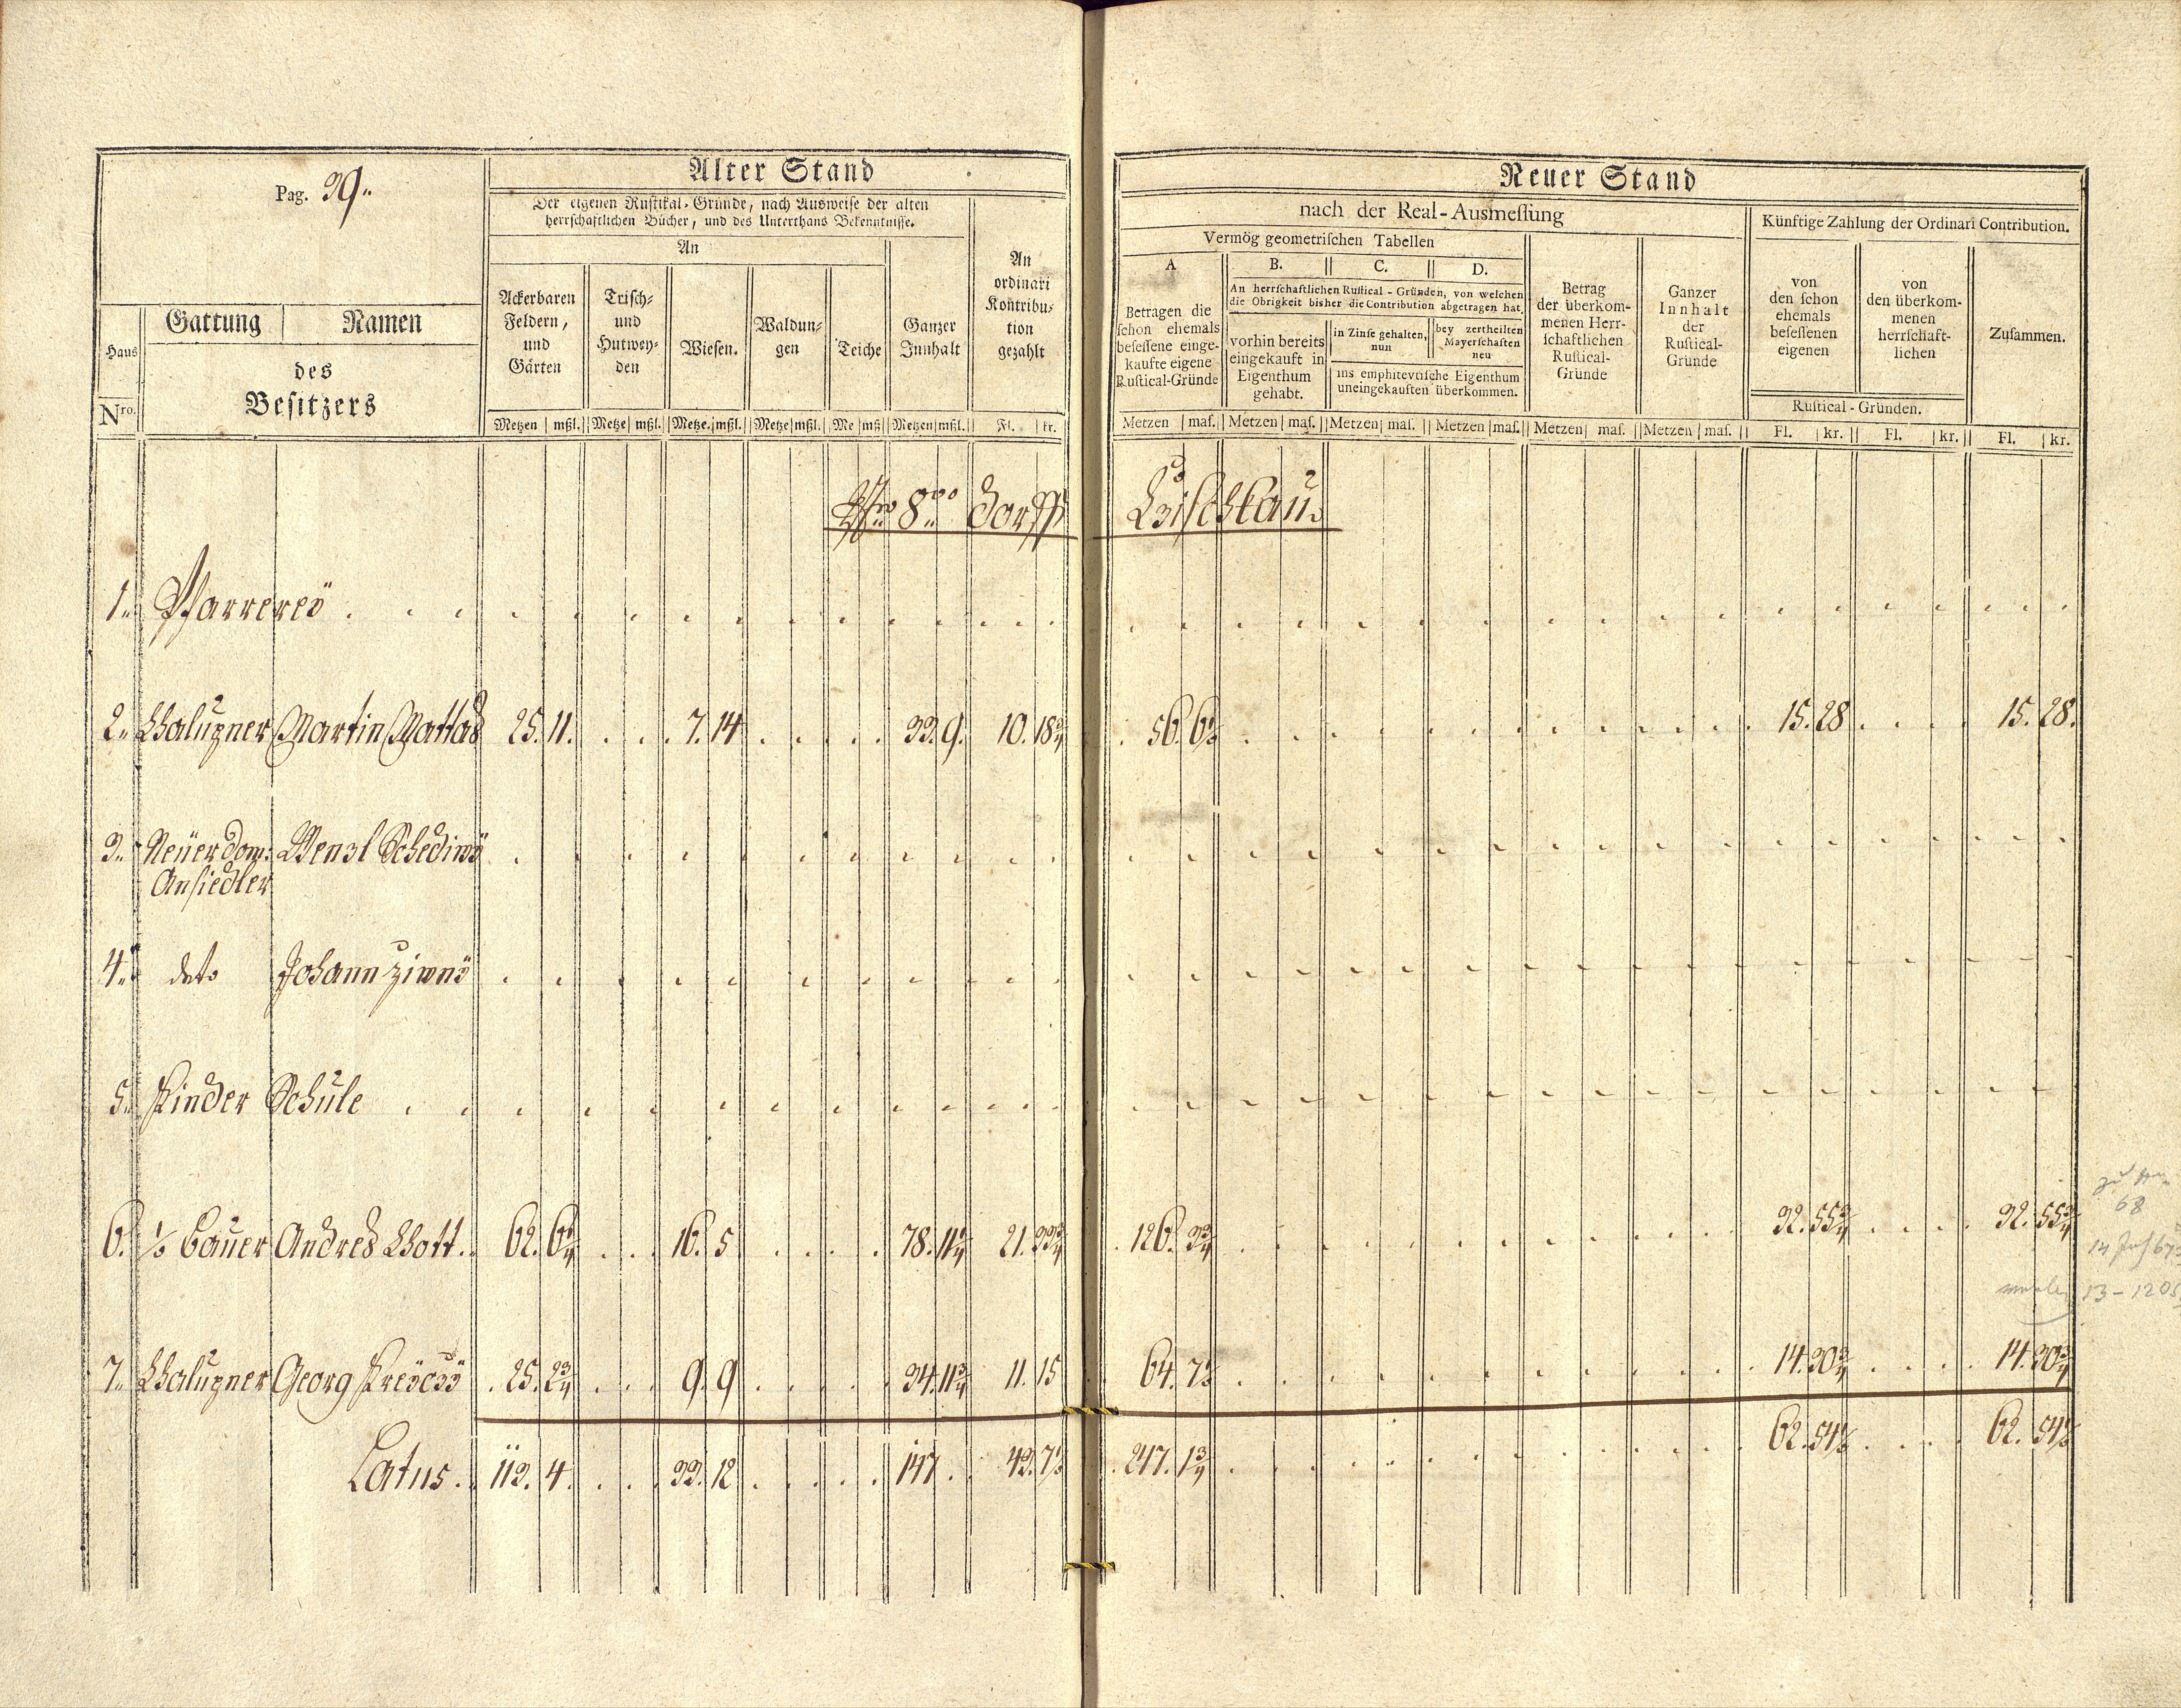 Pag. 39.
Alter Stand
Der eigenen Rustikal-Gründe, nach Ausweise der alten
herrschaftlichen Bücher, und des Unterthans Bekenntnisse.
An
Haus
Nro.
Gattung | Namen
des
Besitzers
Ackerbaren
Feldern,
und
Gärten
Trisch-
und
Hutwey-
den
Wiesen.
Waldun-
gen
Teiche
Ganzer
Innhalt
An
ordinari
Kontribu-
tion
gezahlt
Metzen | mßl. Metze | mßl. Metze. | mßl. Metze | mßl. Me | mß Metzen | mßl. Fl. | kr.
Neuer Stand
nach der Real-Ausmessung
Künftige Zahlung der Ordinari Contribution.
Vermög geometrischen Tabellen
A
Betragen die
schon ehemals
besessene einge-
kaufte eigene
Rustical-Gründe
B. C. D.
An herrschaftlichen Rustical-Gründen, von welchen
die Obrigkeit bisher die Contribution abgetragen hat,
vorhin bereits
eingekauft in
Eigenthum
gehabt.
in Zinse gehalten,
nun
bey zertheilten
Mayerschaften
neu
ins emphitevtische Eigenthum
uneingekauften überkommen.
Betrag
der überkom-
menen Herr-
schaftlichen
Rustical-
Gründe
Ganzer
Innhalt
der
Rustical-
Gründe
von
den schon
ehemals
besessenen
eigenen
von
den überkom-
menen
herrschaft-
lichen
Rustical-Gründen.
Zusammen.
Metzen | mas. Metzen | mas. Metzen | mas. Metzen | mas. Metzen | mas. Metzen | mas. Fl. | kr. Fl. | kr. Fl. | kr.
8. Dorff
1. Pfarrereÿ
2. Chalupner Martin Mattas 25. 11. 7. 14 33. 9. 10. 18 3/4 56. 6 1/2 15. 28 15. 28.
3. Neüer dom: Wenzl Schediwÿ
Ansiedler
4. deto Johann Ziwnÿ
5. Kinder Schule
6. 1/2 Bauer Andres Chott 62. 6 1/4 16. 5 78. 11 1/4 21. 33 3/4 126. 3 3/4 32. 55 3/4 32. 55 3/4
7. Chalupner Georg 25. 2 3/4 9. 9 34. 11 3/4 11. 15 64. 7 1/2 14. 30 3/4 14. 30 3/4
Latus. 113. 4 33. 12 147 43. 7 1/2 247. 1 3/4 62. 54 1/2 62. 54 1/2
68